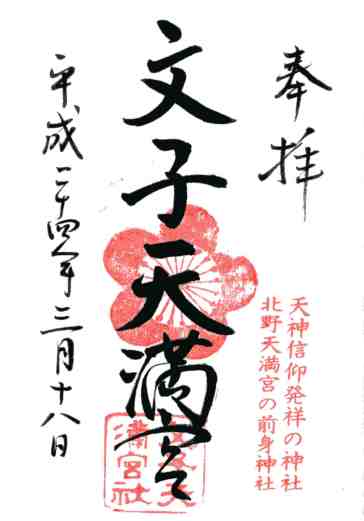 奉拝
天神信仰発祥の神社
北野天満宮の前身神社
文子天満宮
平成二十四年三月十八日
文子天
満宮社